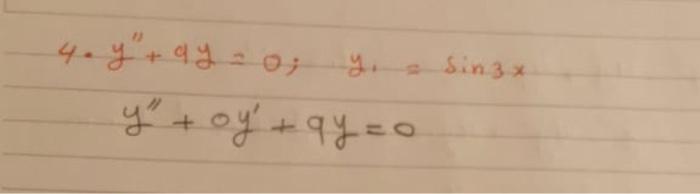 4. y" + 9y = 0; y₁ = sin3x
y" + 0y' + 9y = 0